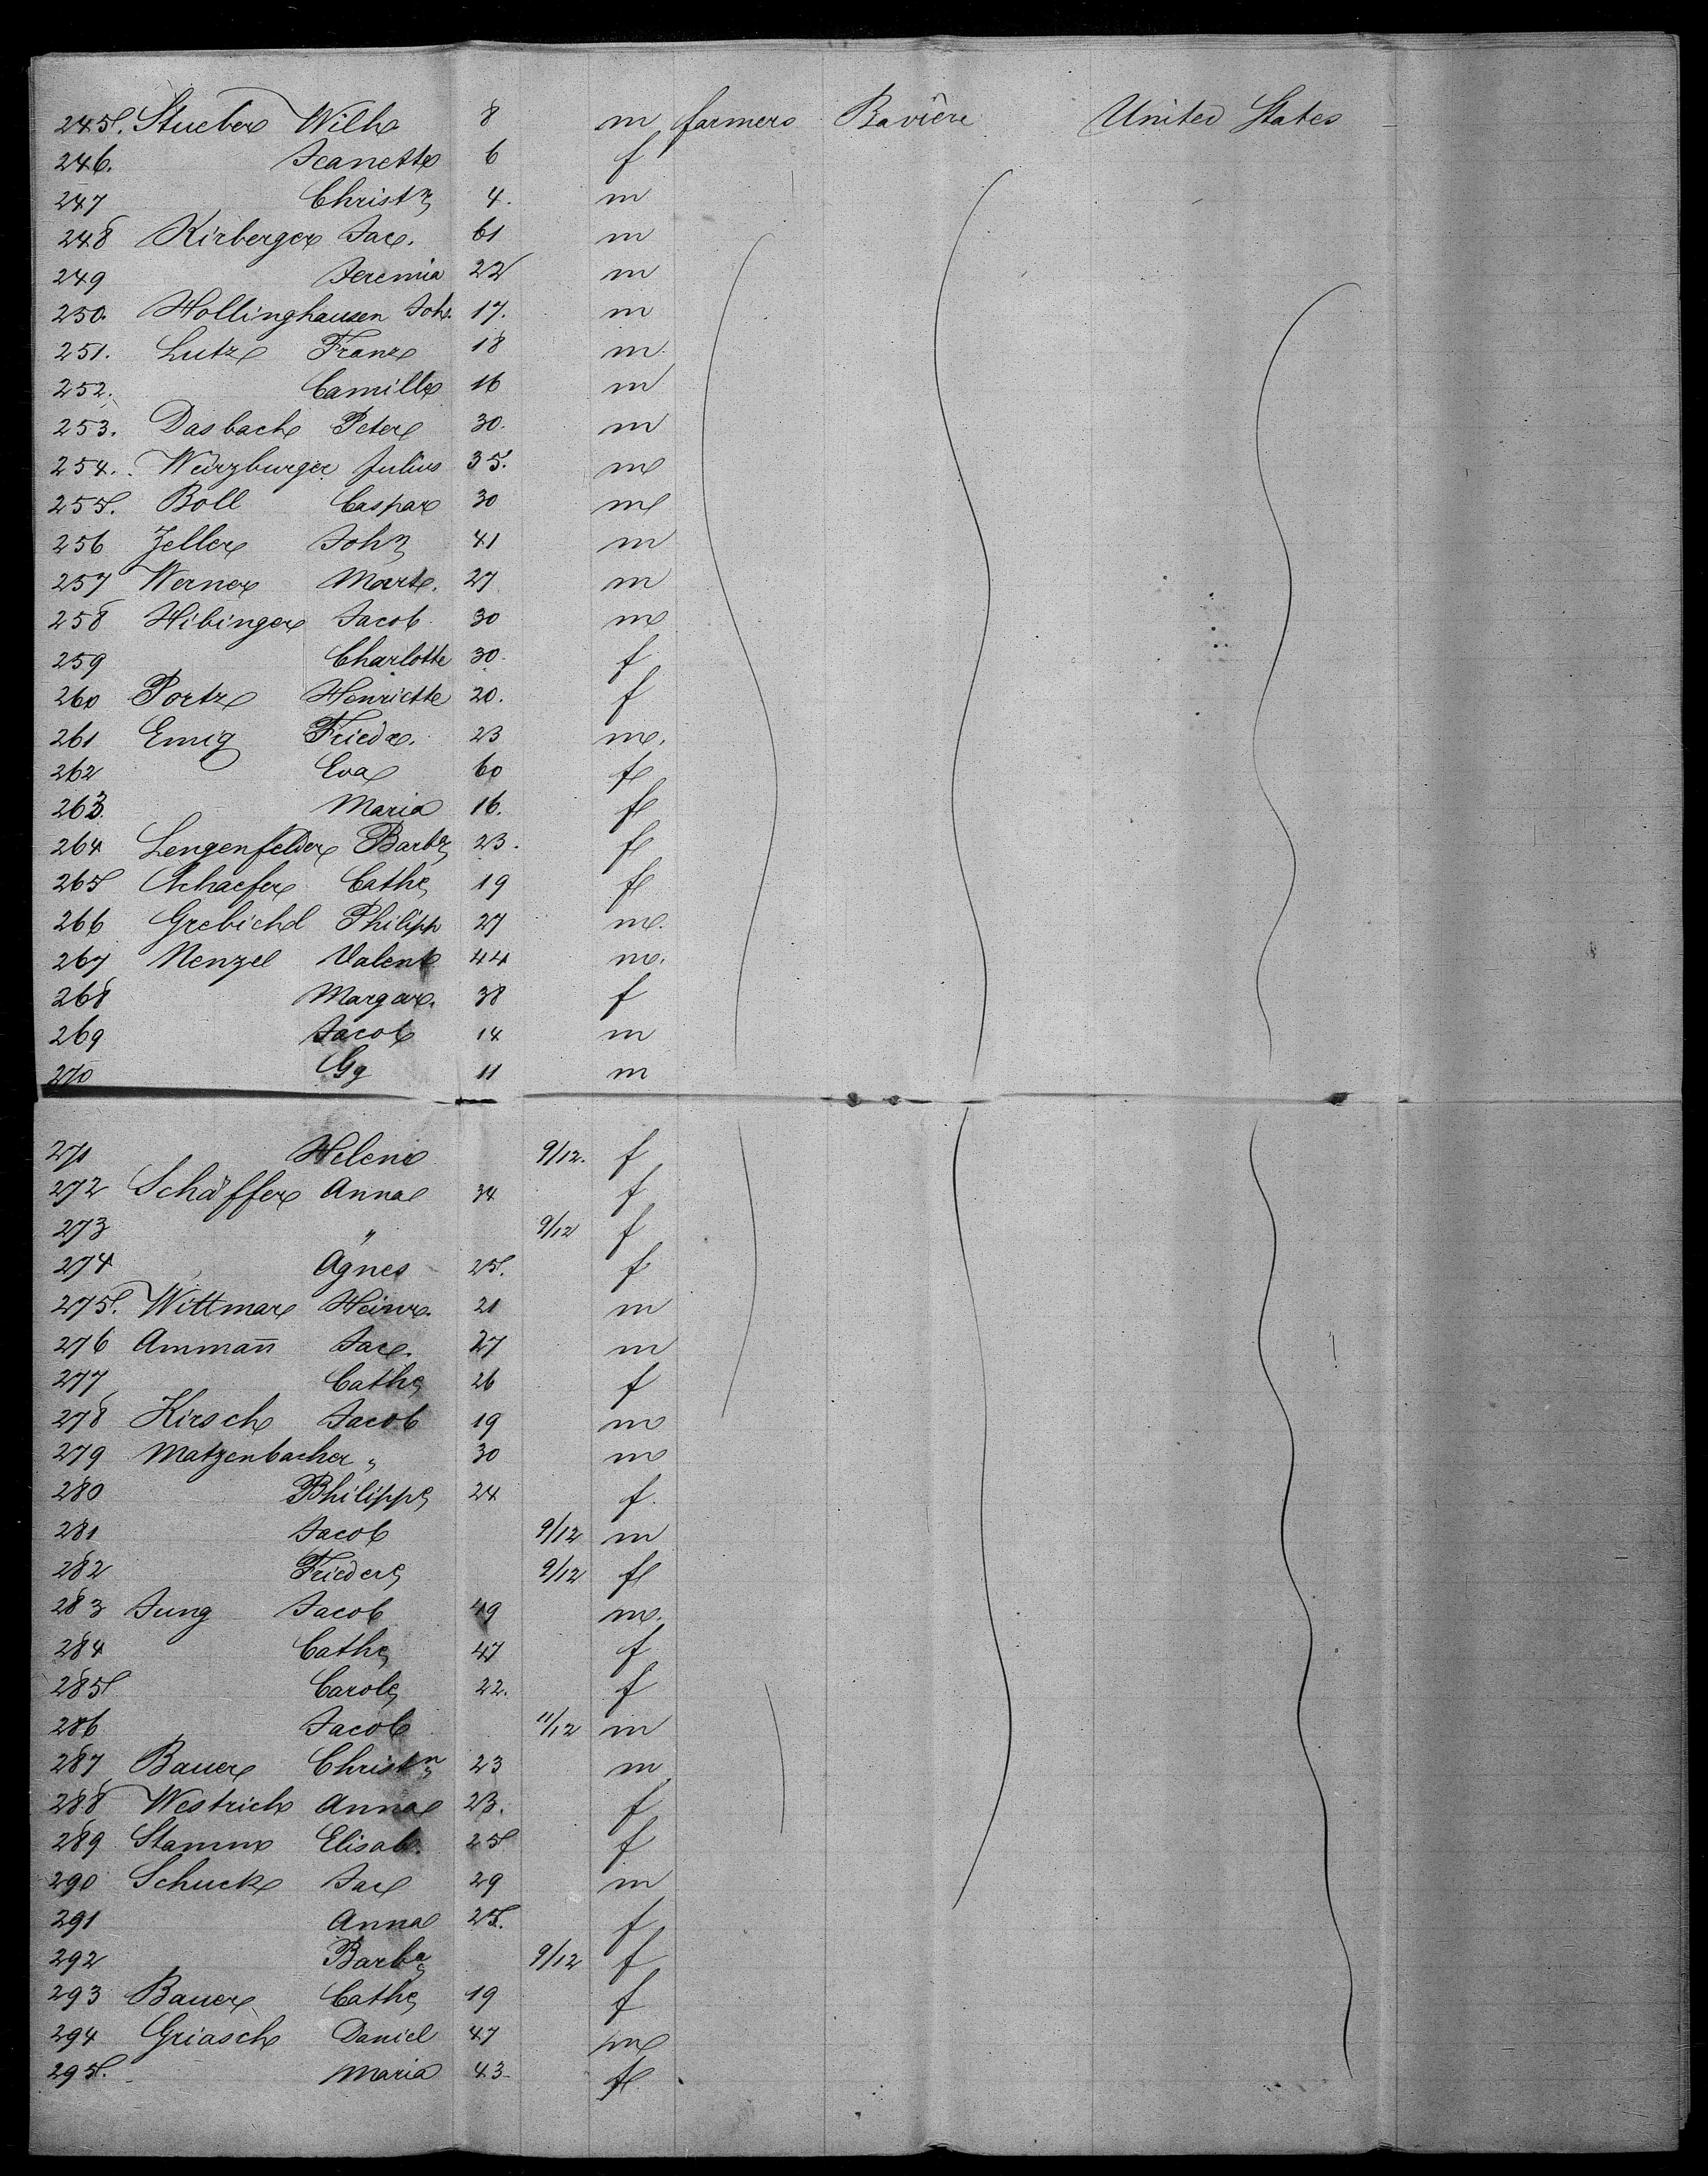 245. Stueber Wilh 8 m farmers Bavière United States
246. Jeanette 6 f
247 Christn 4. m
248 Kirberger Jac. 61 m
249 Jeremia 22 m
250. Hollinghausen Joh. 17. m
251. Lutz Franz 18 m
252. Camille 16 m
253. Dasbach Peter 30. m
254. Würzburger Julius 35. m
255. Boll Caspar 30 m
256 Zeller John 41 m
257 Werner Mart. 27 m
258 Hibinger Jacob 30 m
259 Charlotte 30. f
260 Portz Henriette 20. f
261 Emig Friedr. 23 m.
262 Eva 60 f
263. Maria 16. f
264 Lengenfelder Barba 23. f
265 Schaefer Cathe 19 f
266 Grebichd Philipp 27 m.
267 Menzel Valent 44 m.
268 Margar. 38 f
269 Jacob 14 m
270 Gg 11 m
271 Helene 9/12. f
272 Schäffer Anna 34 f
273 " 9/12 f
274 Agnes 25. f
275. Wittmar Heinr. 21 m
276 Amman̄ Jac. 27 m
277 Cathe 26 f
278 Kirsch Jacob 19 m
279 Matzenbacher " 30 m
280 Philippe 24 f.
281 Jacob 9/12 m
282 Friedere 9/12 f
283 Jung Jacob 49 m.
284 Cathe 47 f
285 Carole 22. f
286 Jacob 11/12 m
287 Bauer Christn 23 m
288 Westrich Anna 23. f
289 Stamm Elisab. 25 f
290 Schuck Jac 29 m
291 Anna 25. f
292 Barba 9/12 f
293 Bauer Cathe 19 f
294 Griasch Daniel 47 m
295. Maria 43 f